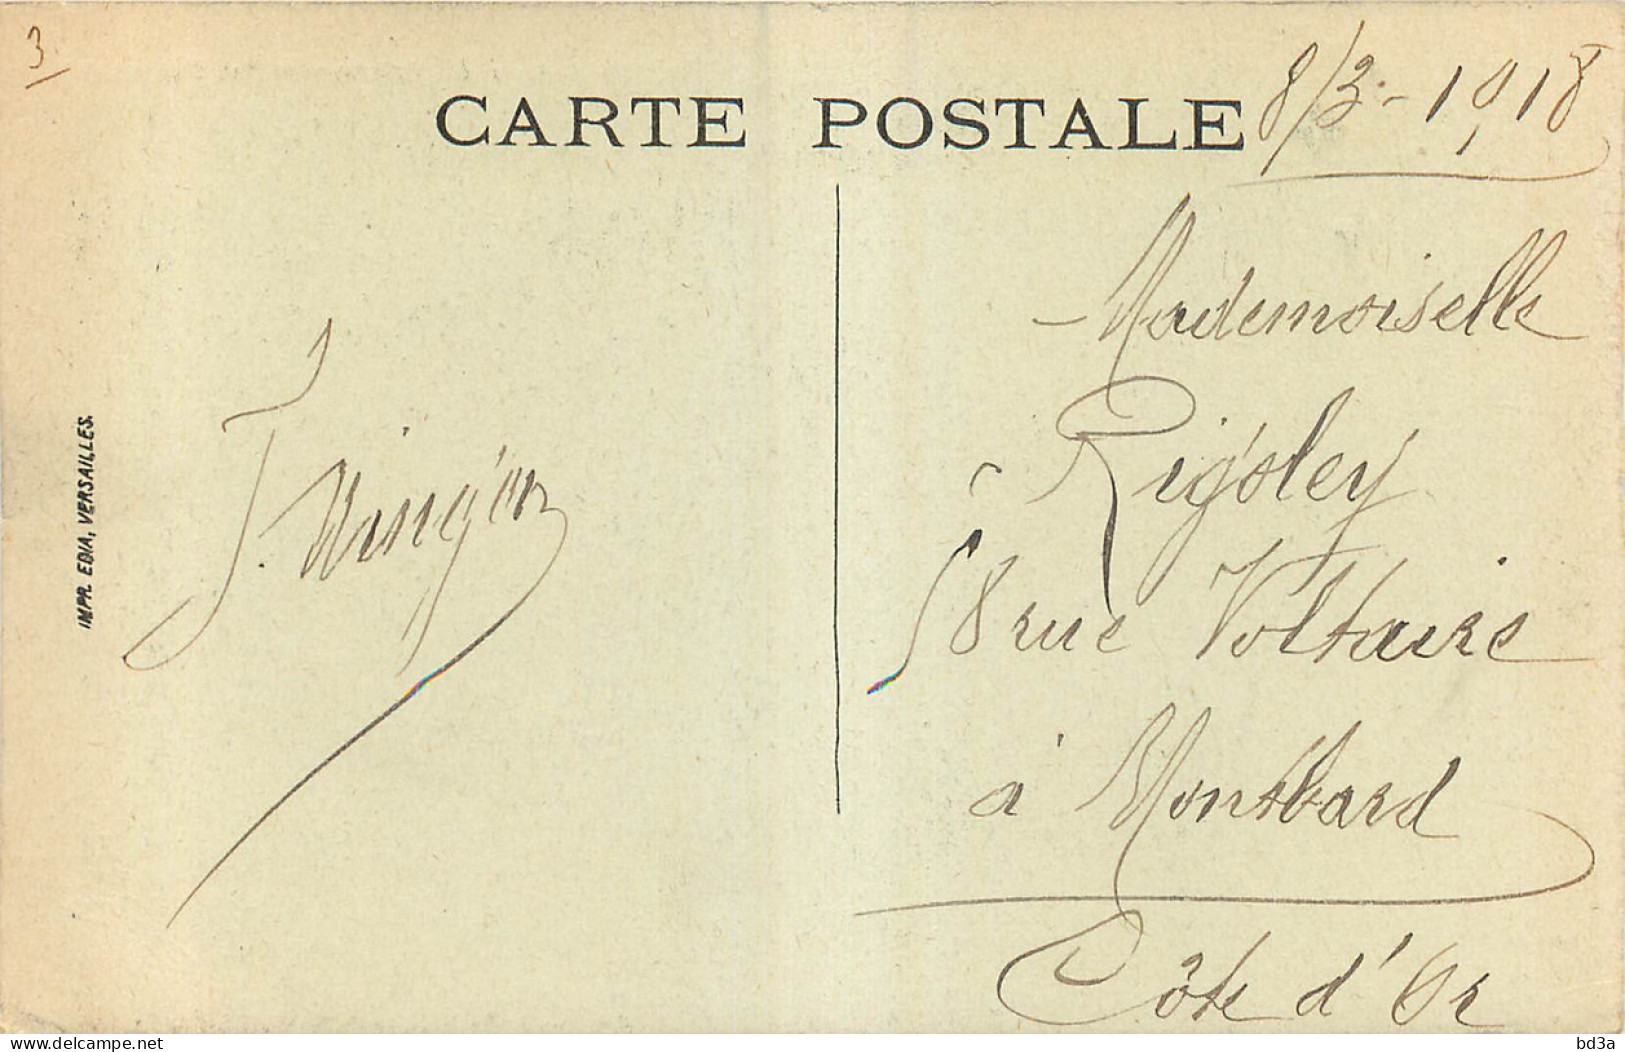 3
CARTE POSTALE
8/3-1918
Mademoiselle
Rigoley
58 rue Voltaire
à Montbard
Côte d'Or
J.
IMPR. EDIA, VERSAILLES.
www.delcampe.net
bd3a